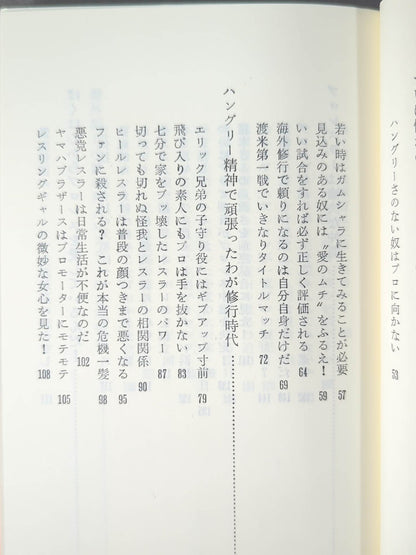 ハングリーさのない奴はプロに向かない 53
若い時はガムシャラに生きてみることが必要 57
見込みのある奴には〝愛のムチ〟をふるえ! 59
いい試合をすれば必ず正しく評価される 64
海外修行で頼りになるのは自分自身だけだ 69
渡米第一戦でいきなりタイトルマッチ 72
ハングリー精神で頑張ったわが修行時代
エリック兄弟の子守り役にはギブアップ寸前 79
飛び入りの素人にもプロは手を抜かない 83
七分で家をブッ壊したレスラーのパワー 87
切っても切れぬ怪我とレスラーの相関関係 90
ヒールレスラーは普段の顔つきまで悪くなる 95
ファンに殺される? これが本当の危機一髪 98
悪党レスラーは日常生活が不便なのだ 102
ヤマハブラザースはプロモーターにモテモテ 105
レスリングギャルの微妙な女心を見た! 108